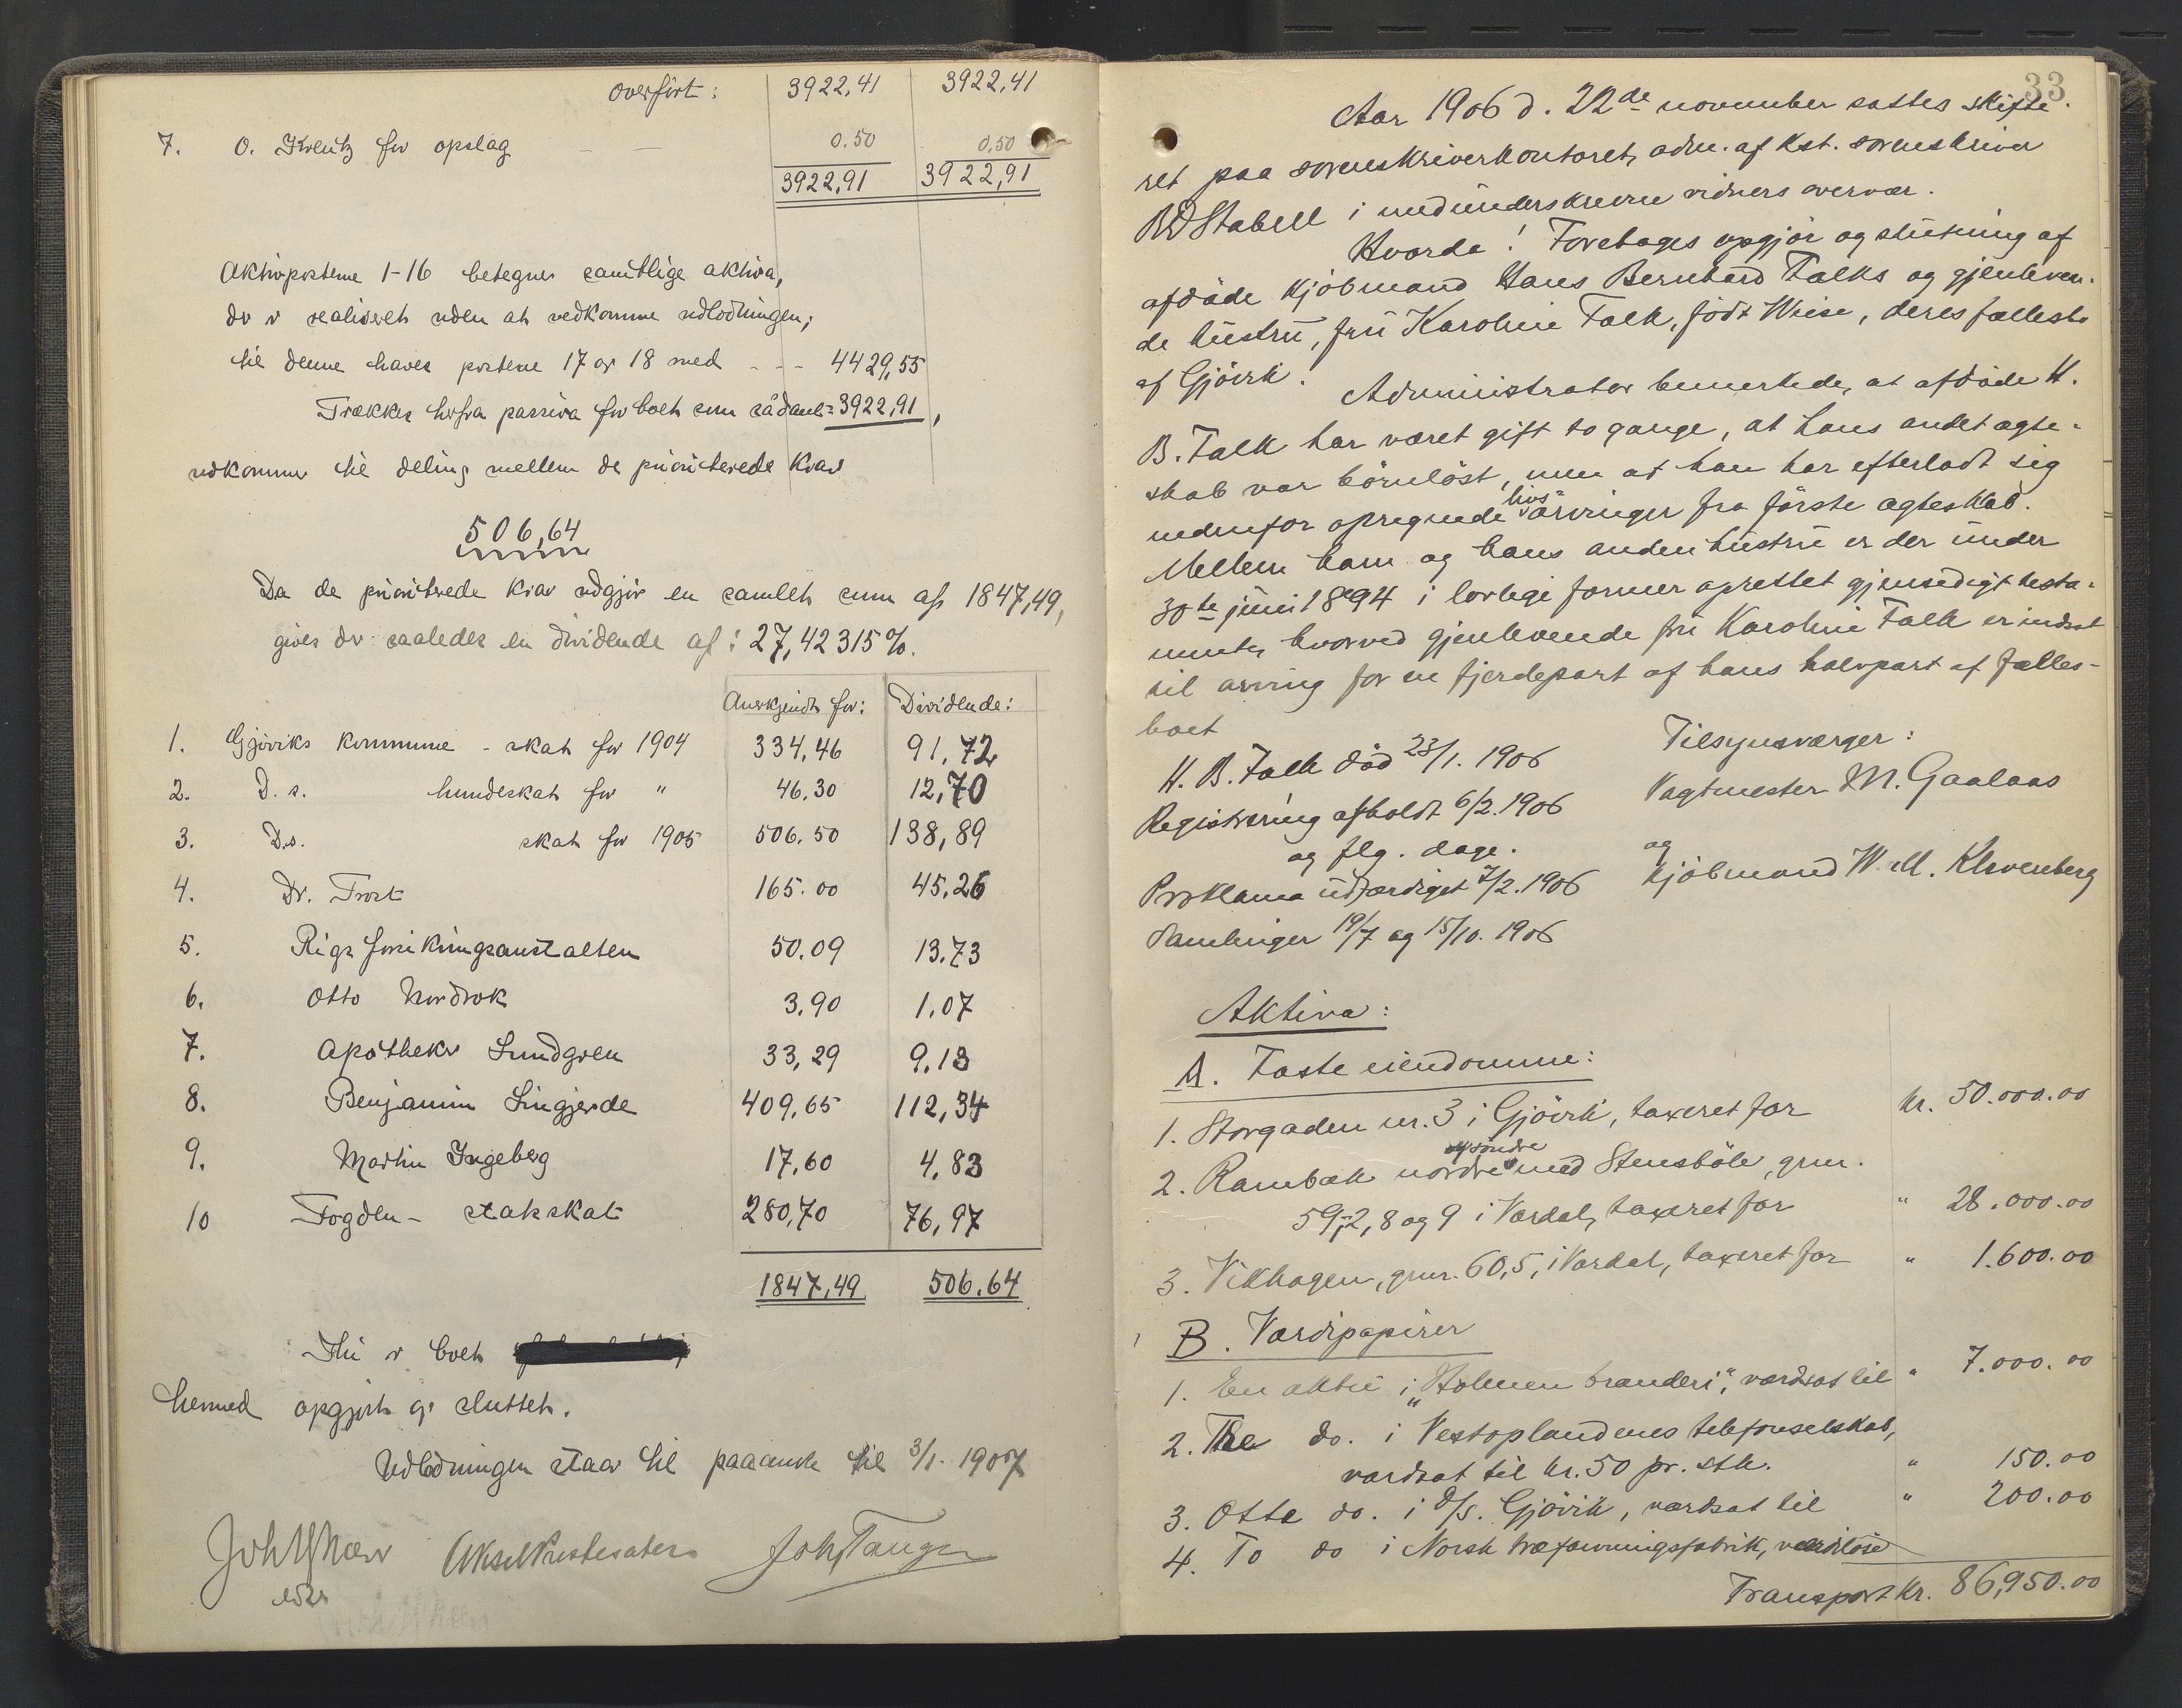 overført: 3922,41 3922,41
7. O. Kreutz for opslag — — 0.50 0,50
3922,91 3922,91
Aktivposterne 1-16 betegner samtlige aktiva,
der er realiseret uden at vedkomme udlodningen;
til denne haves posterne 17 og 18 med - - - 4429,55
Trækkes herfra passiva for boet som sådant = 3922,91,
udkommer til deling mellem de prioriterede krav
506,64
Da de prioriterede krav udgjør en samlet sum af 1847,49,
gives der saaledes en dividende af: 27,42315 %.
Anerkjendt for: Dividende:
1. Gjøviks kommune - skat for 1904 334,46 91,72
2. D. s. hundeskat for " 46.30 12,70
3. D.s. skat for 1905 506.50 138,89
4. Dr. Frost 165.00 45,26
5. Rigsforsikringsanstalten 50.09 13.73
6. Otto Nordrok 3,90 1,07
7. Apotheker Lundgren 33,29 9,13
8. Benjamin Lingjerde 409,65 112,34
9. Martin Ingeberg 17,60 4,83
10 Fogden - statskat 280,70 76,97
1847,49 506.64
Thi er boet
hermed opgjort og sluttet.
Udlodningen staar til paaanke til 3/1. 1907
Aksel Prestesæter Joh. Tangen
33
Aar 1906 d. 22de november sattes skifte-
ret paa sorenskriverkontoret, adm. af kst. sorenskriver
BD Stabell i medunderskrevne vidners overvær.
Hvorda! Foretages opgjør og slutning af
afdøde kjøbmand Hans Bernhard Falks og gjenleven-
de hustru, fru Karoline Falk, født Wiese, deres fællesbo
af Gjøvik.
Administrator bemerkede, at afdøde H.
B. Falk har været gift to gange, at hans andet ægte-
skab var børnløst, men at han har efterladt sig
nedenfor opregnede livsarvinger fra første ægteskab.
Mellem ham og hans anden hustru er der under
30te juni 1894 i lovlige former oprettet gjensidigt testa-
mente, hvorved gjenlevende fru Karoline Falk er indsat
til arving for en fjerdepart af hans halvpart af fælles-
boet
H. B. Falk død 23/1. 1906
Registrering afholdt 6/2. 1906
og flg. dage.
Proklama udfærdiget 7/2. 1906
Samlinger 19/7 og 15/10. 1906
Tilsynsværger:
Vagtmester M. Gaalaas
og
kjøbmand W. M. Klevenberg
Aktiva:
A. Faste eiendomme:
1. Storgaden nr. 3 i Gjøvik, taxeret for kr. 50.000.00
2. Rambæk nordre og søndre med Stensbøle, gnr.
59, 2, 8 og 9 i Vardal, taxeret for " 28.000.00
3. Vikhagen, gnr. 60,5, i Vardal, taxeret for " 1.600.00
B. Værdipapirer
1. En aktie i „Holmen brænderi“, værdsat til " 7.000.00
2. Tre do. i Vestoplandenes telefonselskab,
værdsat til kr. 50 pr. stk. " 150.00
3. Otte do. i D/S. Gjøvik, værdsat til " 200.00
4. To do i Norsk træfarvningsfabrik, værdiløse
Transport kr. 86,950.00